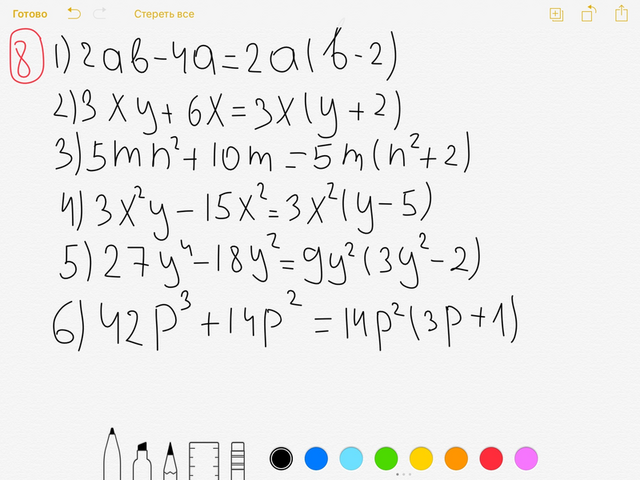 Готово Стереть все
8 1) 2ab-4a=2a(b-2)
2) 3xy+6x=3x(y+2)
3) 5mn²+10m=5m(n²+2)
4) 3x²y-15x²=3x²(y-5)
5) 27y⁴-18y²=9y²(3y²-2)
6) 42p³+14p²=14p²(3p+1)